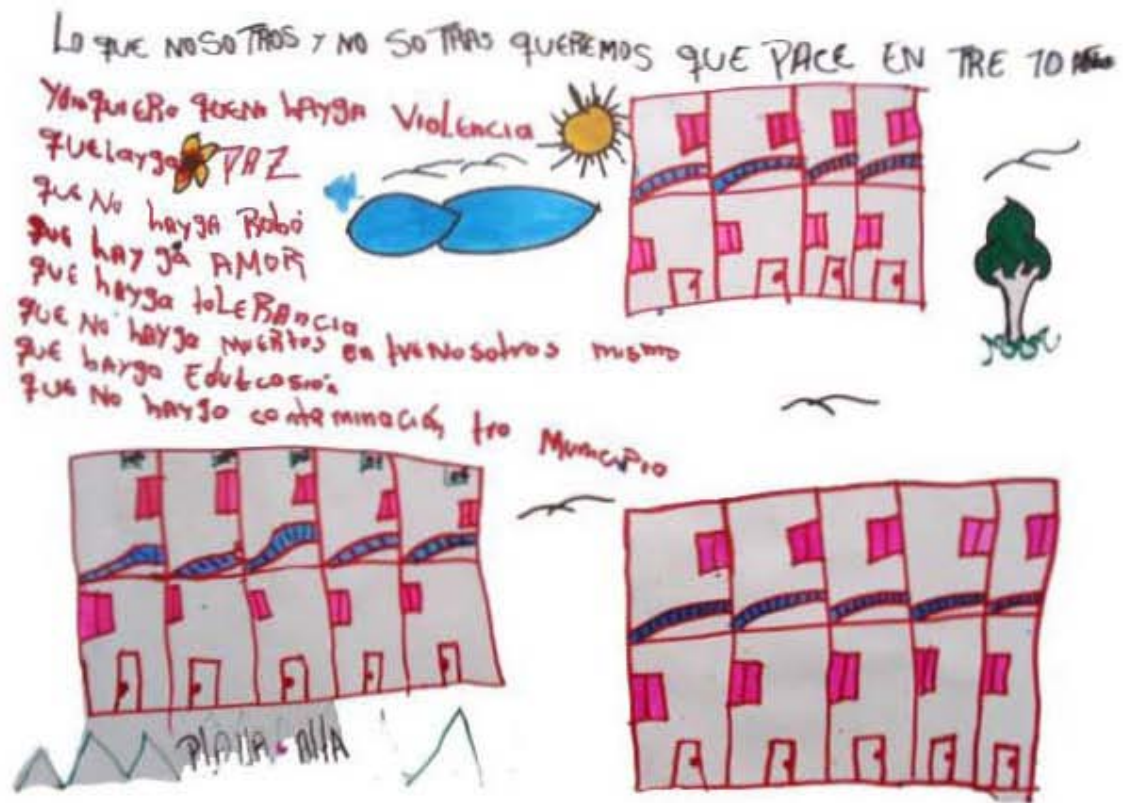 LO QUE NOSOTROS Y NOSOTRAS QUEREMOS QUE PACE EN TRE 10 AÑOS
YO QUIERO QUE NO HAYGA VIOLENCIA
QUE HAYGA PAZ
QUE NO HAYGA ROBO
QUE HAYGA AMOR
QUE HAYGA TOLERANCIA
QUE NO HAYGA MUERTOS EN TRE NOSOTROS MISMO
QUE HAYGA EDUCASIÓN
QUE NO HAYGA CONTAMINACIÓN MUNICIPIO
PLAYA